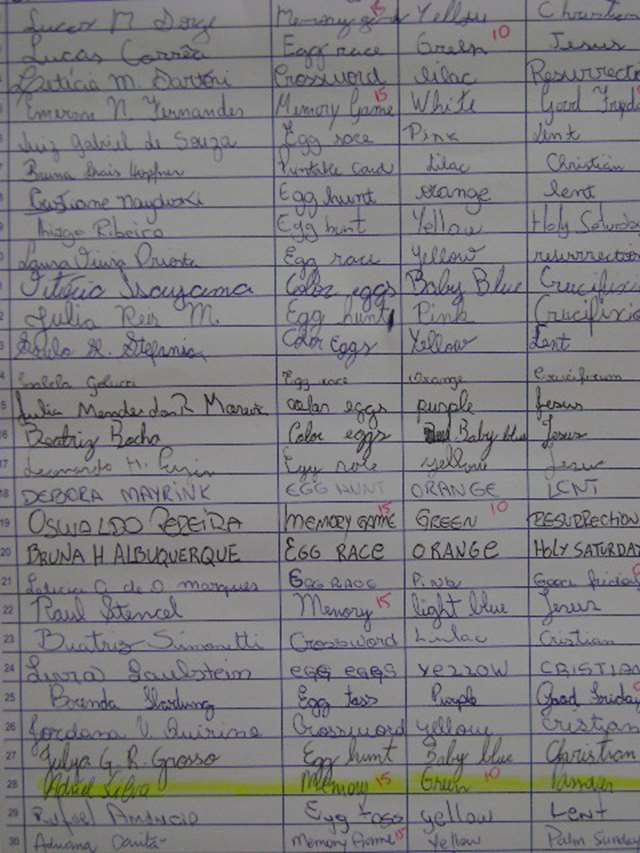 Lucas M Dorge Memory game Yellow Christian
Lucas Corrêa Egg race Green 10 Jesus
Letícia M. Sartori Crossword lilac Resurrecti
Emerson N. Fernandes Memory Game 15 White Good Fryd
Luiz Gabriel de Souza Egg race Pink lent
Bruna Lilac Christian
Cristiane Egg hunt orange lent
9 Thiago Ribeiro Egg hunt Yellow Holy Saturda
Laura Viena Egg race Yellow resurrection
Vitória Isayama Color eggs Baby Blue Crucifixio
2 Julia Reis M. Egg hunt Pink Crucifixio
3 Paulo R. Stefania Color Eggs Yellow Lent
4 Egg race Orange
5 Julia Mendes color eggs purple Jesus
16 Beatriz Rocha Color eggs Baby blue Jesus
17 Leonardo H. Egg race yellow Jesus
18 DEBORA MAYRINK EGG HUNT ORANGE LENT
19 OSWALDO PEREIRA MEMORY GAME 15 GREEN 10 RESURRECTION
20 BRUNA H ALBUQUERQUE EGG RACE ORANGE HOLY SATURDAY
21 Leticia O. de O. marques EGG RACE PINK Good friday
22 Raul Stencel Memory 15 light blue Jesus
23 Beatriz Simonetti Crossword Lilac Cristian
24 EGG EGGS YELLOW CRISTIAN
25 Brenda Egg toss Purple Good Friday
26 Jordana V. Quirino Crossword yellow Cristian
27 Julya G. R. Grosso Egg hunt Baby blue Christian
28 Silva Memory 15 Green 10
29 Rafael Amancio Egg toss yellow Lent
30 Adriana Memory Game 15 Yellow Palm Sunday